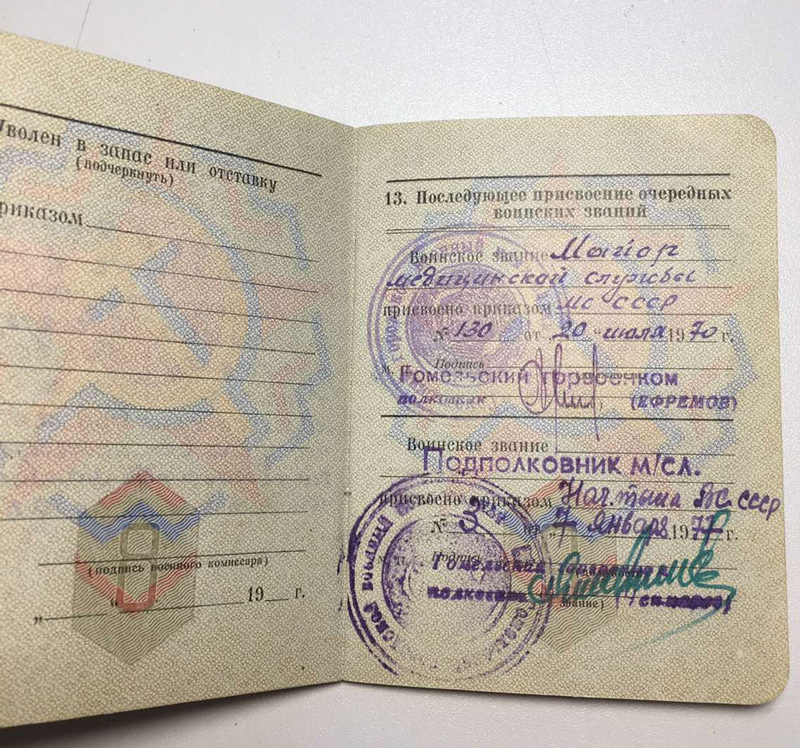 Уволен в запас или отставку
(подчеркнуть)
приказом
(подпись военного комиссара)
„ “ 19 г.
13. Последующее присвоение очередных
воинских званий
Воинское звание Майор
медицинской службы
присвоено приказом МО СССР
№ 130 от „20“ июля 1970 г.
Подпись
Гомельский горвоенком
полковник (ЕФРЕМОВ)
Воинское звание
Подполковник м/сл.
присвоено приказом Нач. тыла ВС СССР
№ 3 от „7“ января 1977 г.
Подпись
Гомельский
полковник
звание)